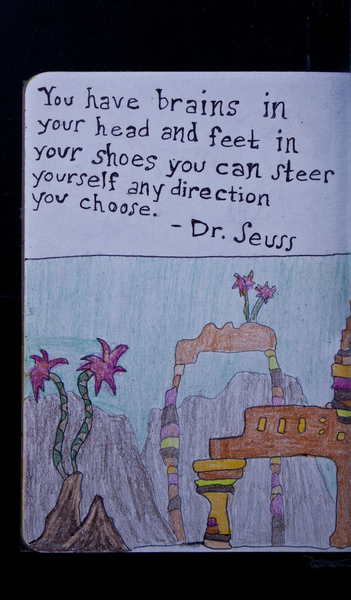 You have brains in
your head and feet in
your shoes you can steer
yourself any direction
you choose.
- Dr. Seuss